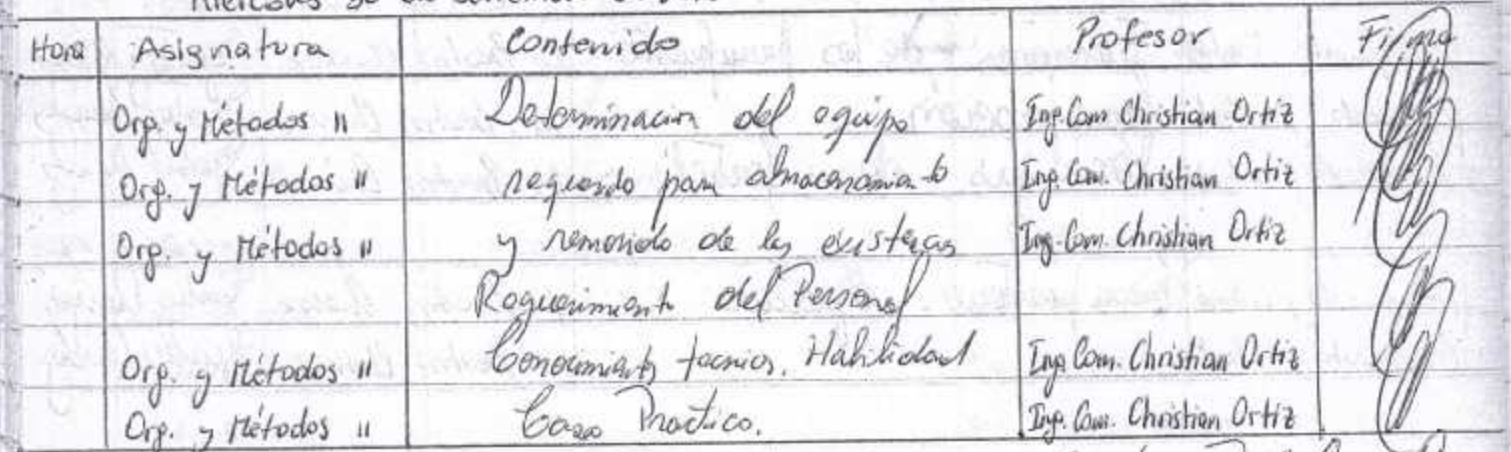 Miércoles 30 de
Hora Asignatura Contenido Profesor Firma
Org. y Métodos II Determinacion del equipo Ing. Com. Christian Ortiz
Org. y Métodos II requerido para almacenamiento Ing. Com. Christian Ortiz
Org. y Métodos II y removido de las existencias Ing. Com. Christian Ortiz
Requerimiento del Personal
Org. y Métodos II Conocimiento tecnico, Habilidad Ing. Com. Christian Ortiz
Org. y Métodos II Caso Practico. Ing. Com. Christian Ortiz